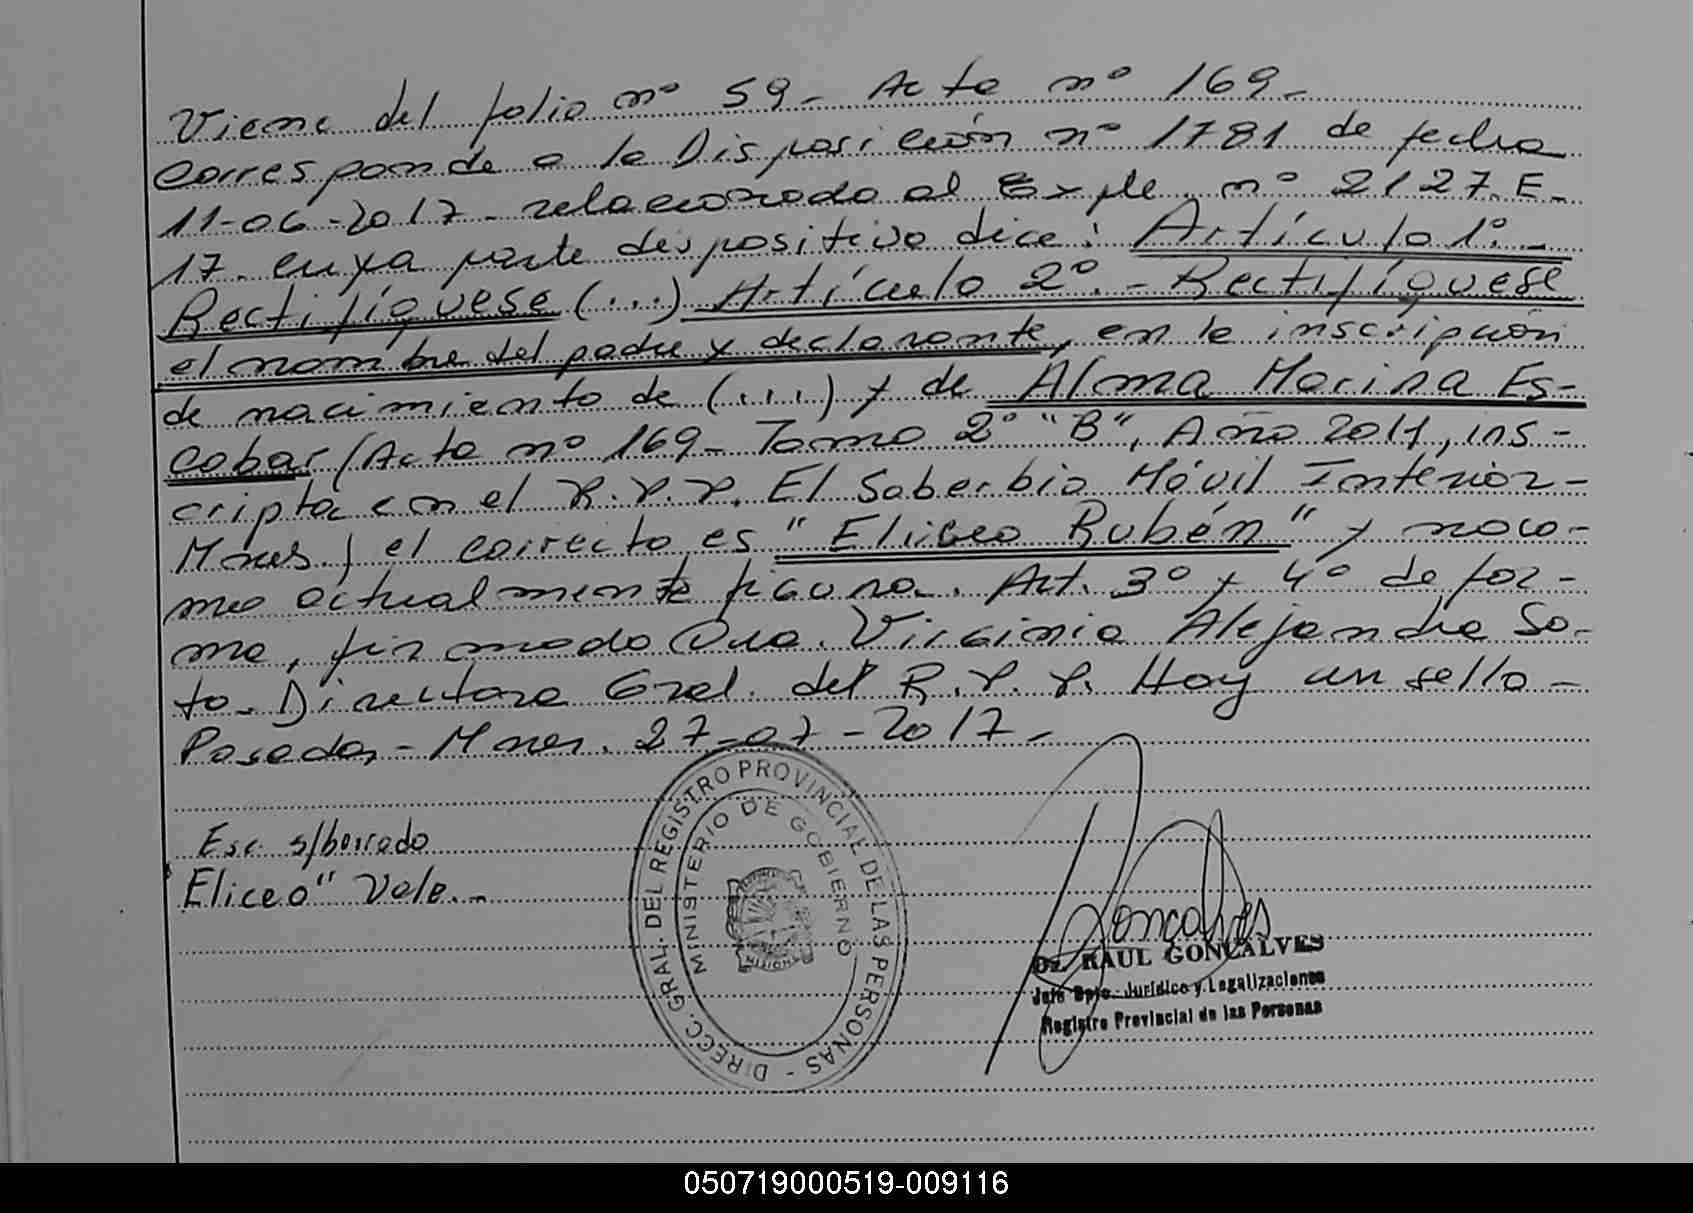 Viene del folio nº 59- Acta nº 169-
Corresponde a la Disposición nº 1781 de fecha
11-06-2017- relacionado al Expte. nº 2127-E-
17- cuya parte dispositiva dice: Artículo 1º.-
Rectifíquese (...) Artículo 2º.- Rectifíquese
el nombre del padre y declarante, en la inscripción
de nacimiento de (...) y de Alma Marina Es-
cobar (Acta nº 169- Tomo 2º "B", Año 2011, ins-
cripta en el R.P.P. El Soberbio Móvil Interior-
Mnes.) el correcto es "Eliceo Rubén" y no co-
mo actualmente figura. Art. 3º y 4º de for-
ma, firmado Dra. Virginia Alejandra So-
to- Directora Gral. del R.P.P. Hay un sello-
Posadas- Mnes. 27-07-2017-
Esc. s/borrado
Eliceo" Vale.-
DIRECC. GRAL. DEL REGISTRO PROVINCIAL DE LAS PERSONAS -
MINISTERIO DE GOBIERNO
MISIONES
Goncalves
Dr. RAUL GONCALVES
Jefe Dpto. Jurídico y Legalizaciones
Registro Provincial de las Personas
050719000519-009116